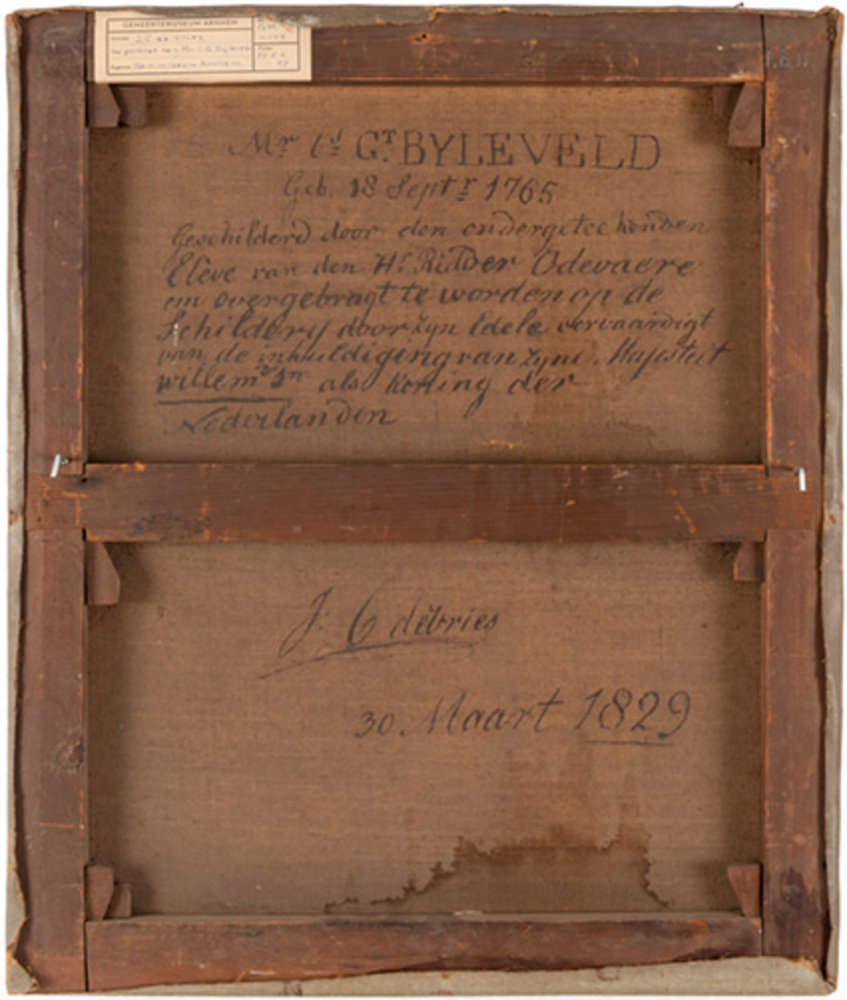 GEMEENTEMUSEUM ARNHEM
J.C. de Vries
Mr Cs GT. BYLEVELD
Geb. 18 Septr 1765
Geschilderd door den ondergeteekenden
Eleve van den Hr Ridder Odevaere
om overgebragt te worden op de
Schildery door Zyn Edele vervaardigt
van de inhuldiging van Zyne Majesteit
willem als Koning der
Nederlanden
J. C de Vries
30 Maart 1829